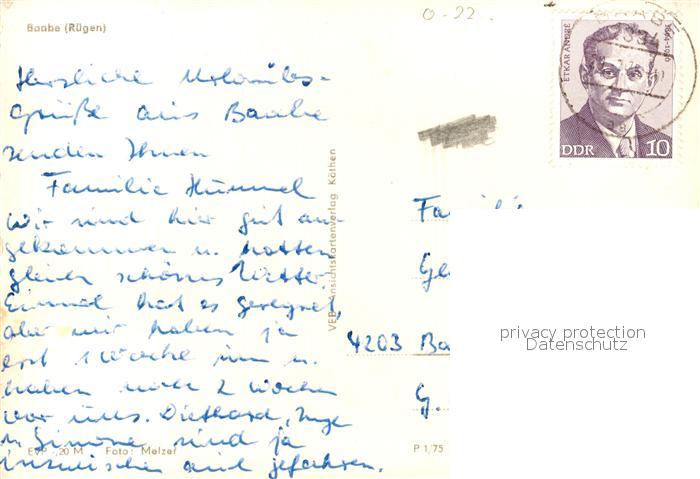 0-22.
Baabe (Rügen)
ETKAR ANDRÉ
1894-1936
DDR 10
Herzliche Urlaubs-
grüße aus Baabe
senden Ihnen
Familie Hummel
Wir sind hier gut an-
gekommen u. hatten
gleich schönes Wetter.
Einmal hat es geregnet,
aber wir haben ja
erst 1 Woche um u.
haben noch 2 Wochen
vor uns. Diethard, Inge
u. Simone sind ja
inzwischen auch gefahren.
VEB Ansichtskartenverlag Köthen
Fa
Ge
4203 Ba
G.
privacy protection
Datenschutz
EVP -,20 M Foto: Melzer
P 1/75